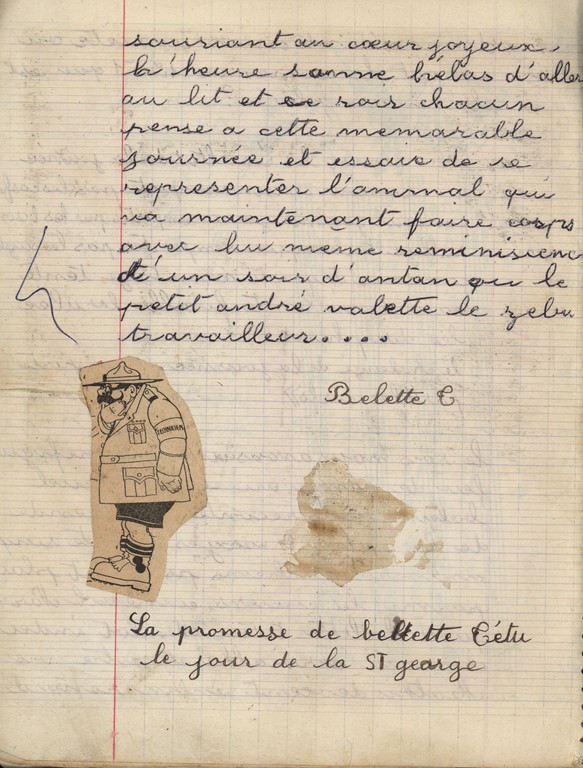 souriant au cœur joyeux.
L'heure sonne hélas d'aller
au lit et ce soir chacun
pense a cette memarable
journée et essaie de se
representer l'animal qui
va maintenant faire corps
avec lui même reminisienc
d'un soir d'antan ou le
petit andré valette le zebu
travailleur....
Belette E
La promesse de belette Têtu
le jour de la ST gearge